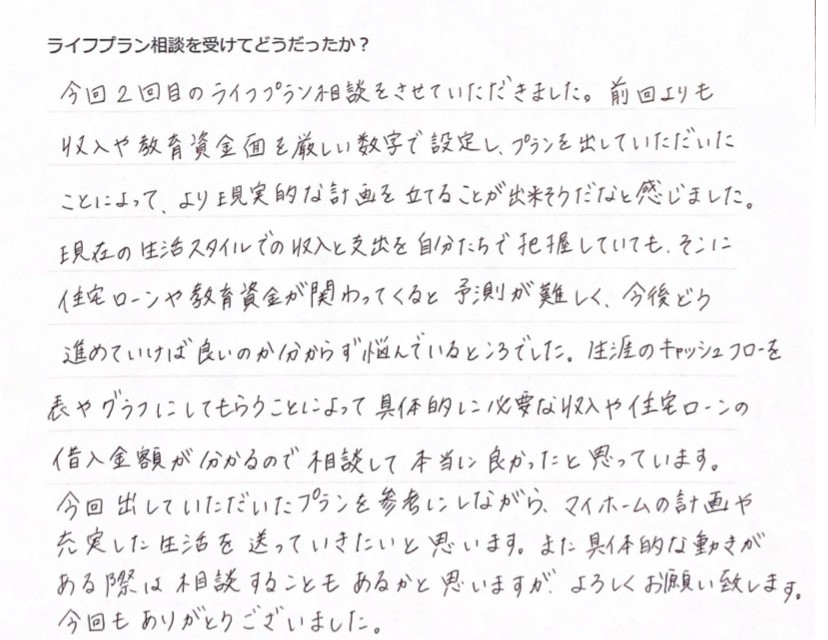 ライフプラン相談を受けてどうだったか？
今回2回目のライフプラン相談をさせていただきました。前回よりも
収入や教育資金面を厳しい数字で設定し、プランを出していただいた
ことによって、より現実的な計画を立てることが出来そうだなと感じました。
現在の生活スタイルでの収入と支出を自分たちで把握していても、そこに
住宅ローンや教育資金が関わってくると予測が難しく、今後どう
進めていけば良いのか分からず悩んでいるところでした。生涯のキャッシュフローを
表やグラフにしてもらうことによって具体的に必要な収入や住宅ローンの
借入金額が分かるので相談して本当に良かったと思っています。
今回出していただいたプランを参考にしながら、マイホームの計画や
充実した生活を送っていきたいと思います。また具体的な動きが
ある際は相談することもあるかと思いますが、よろしくお願い致します。
今回もありがとうございました。